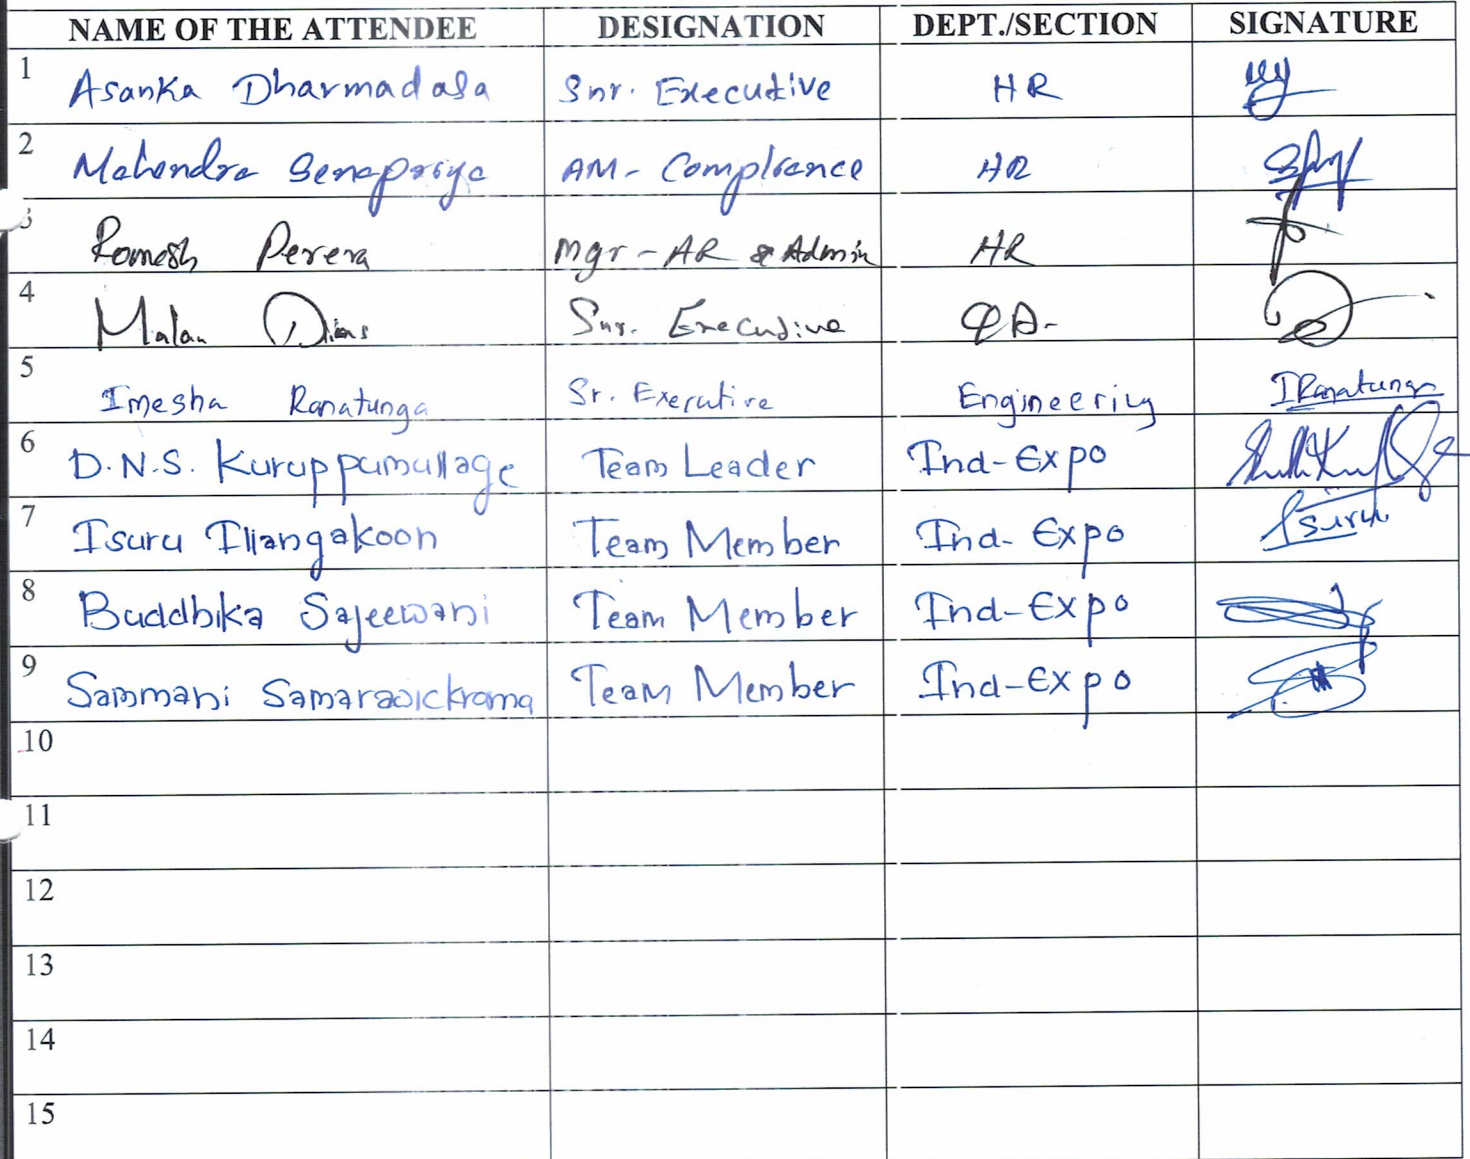 NAME OF THE ATTENDEE DESIGNATION DEPT./SECTION SIGNATURE
1 Asanka Dharmadasa Snr. Executive HR
2 Mahendra Senapriya AM - Compliance HR
3 Romesh Perera Mgr - AR & Admin HR
4 Malan Dias Snr. Executive QA-
5 Imesha Ranatunga Sr. Executive Engineering IRanatunga
6 D.N.S. Kuruppumullage Team Leader Ind-Expo
7 Isuru Illangakoon Team Member Ind-Expo Isuru
8 Buddhika Sajeewani Team Member Ind-Expo
9 Sammani Samarawickrama Team Member Ind-Expo
10
11
12
13
14
15